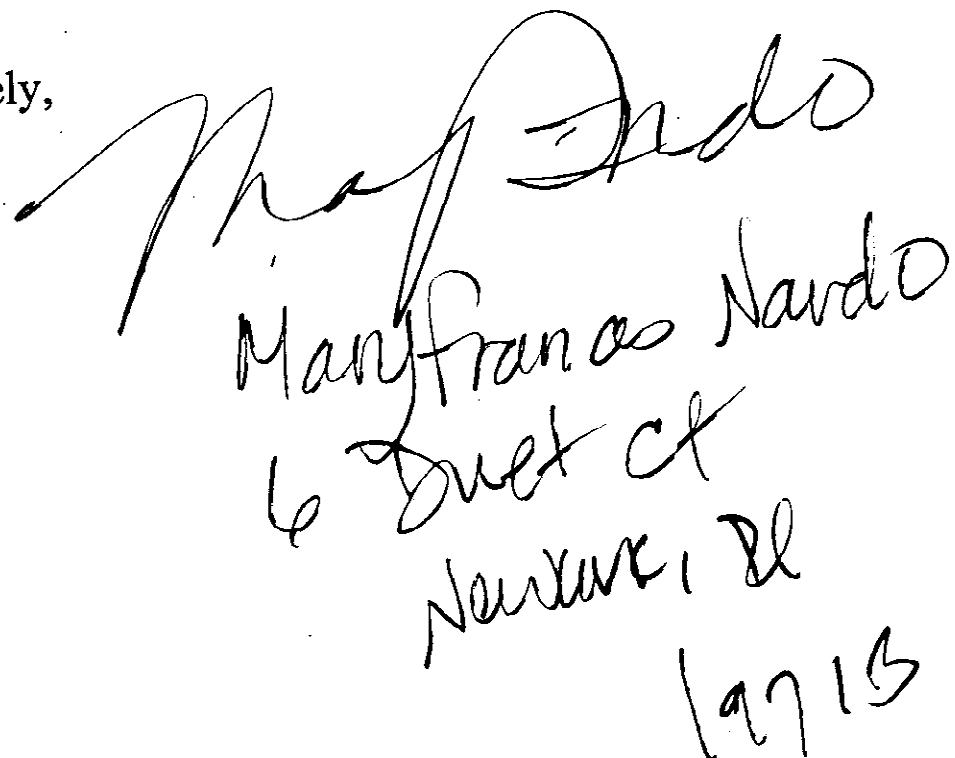 ely,
Maryfrances Nardo
6 Duet Ct
Newark, De
19713